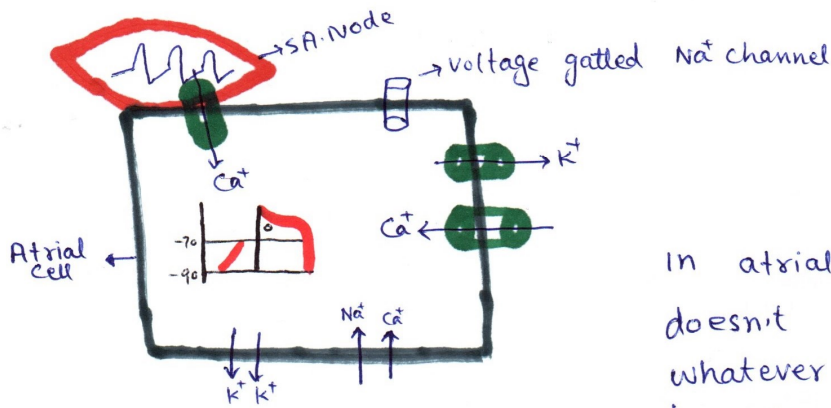 SA.Node
voltage gatted Na+ channel
Ca+
K+
Ca+
Atrial
cell
-70
-90
0
Na+ Ca+
K+ K+
In atrial
doesn't
whatever